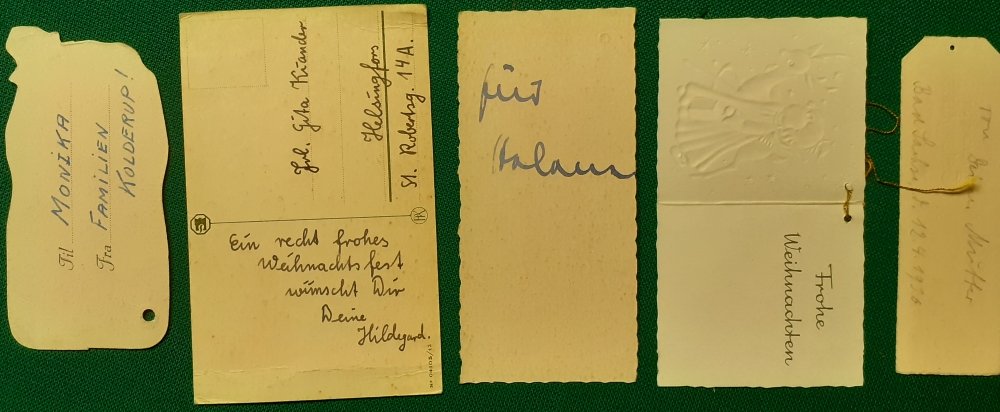 Til MONIKA
Fra FAMILIEN
KOLDERUP!
Frl. Gita Kiander
Helsingfors
St. Robertsg. 14A.
Ein recht frohes
Weihnachtsfest
wünscht Dir
Deine
Hildegard.
für
Frohe
Weihnachten
Mutter
Bad